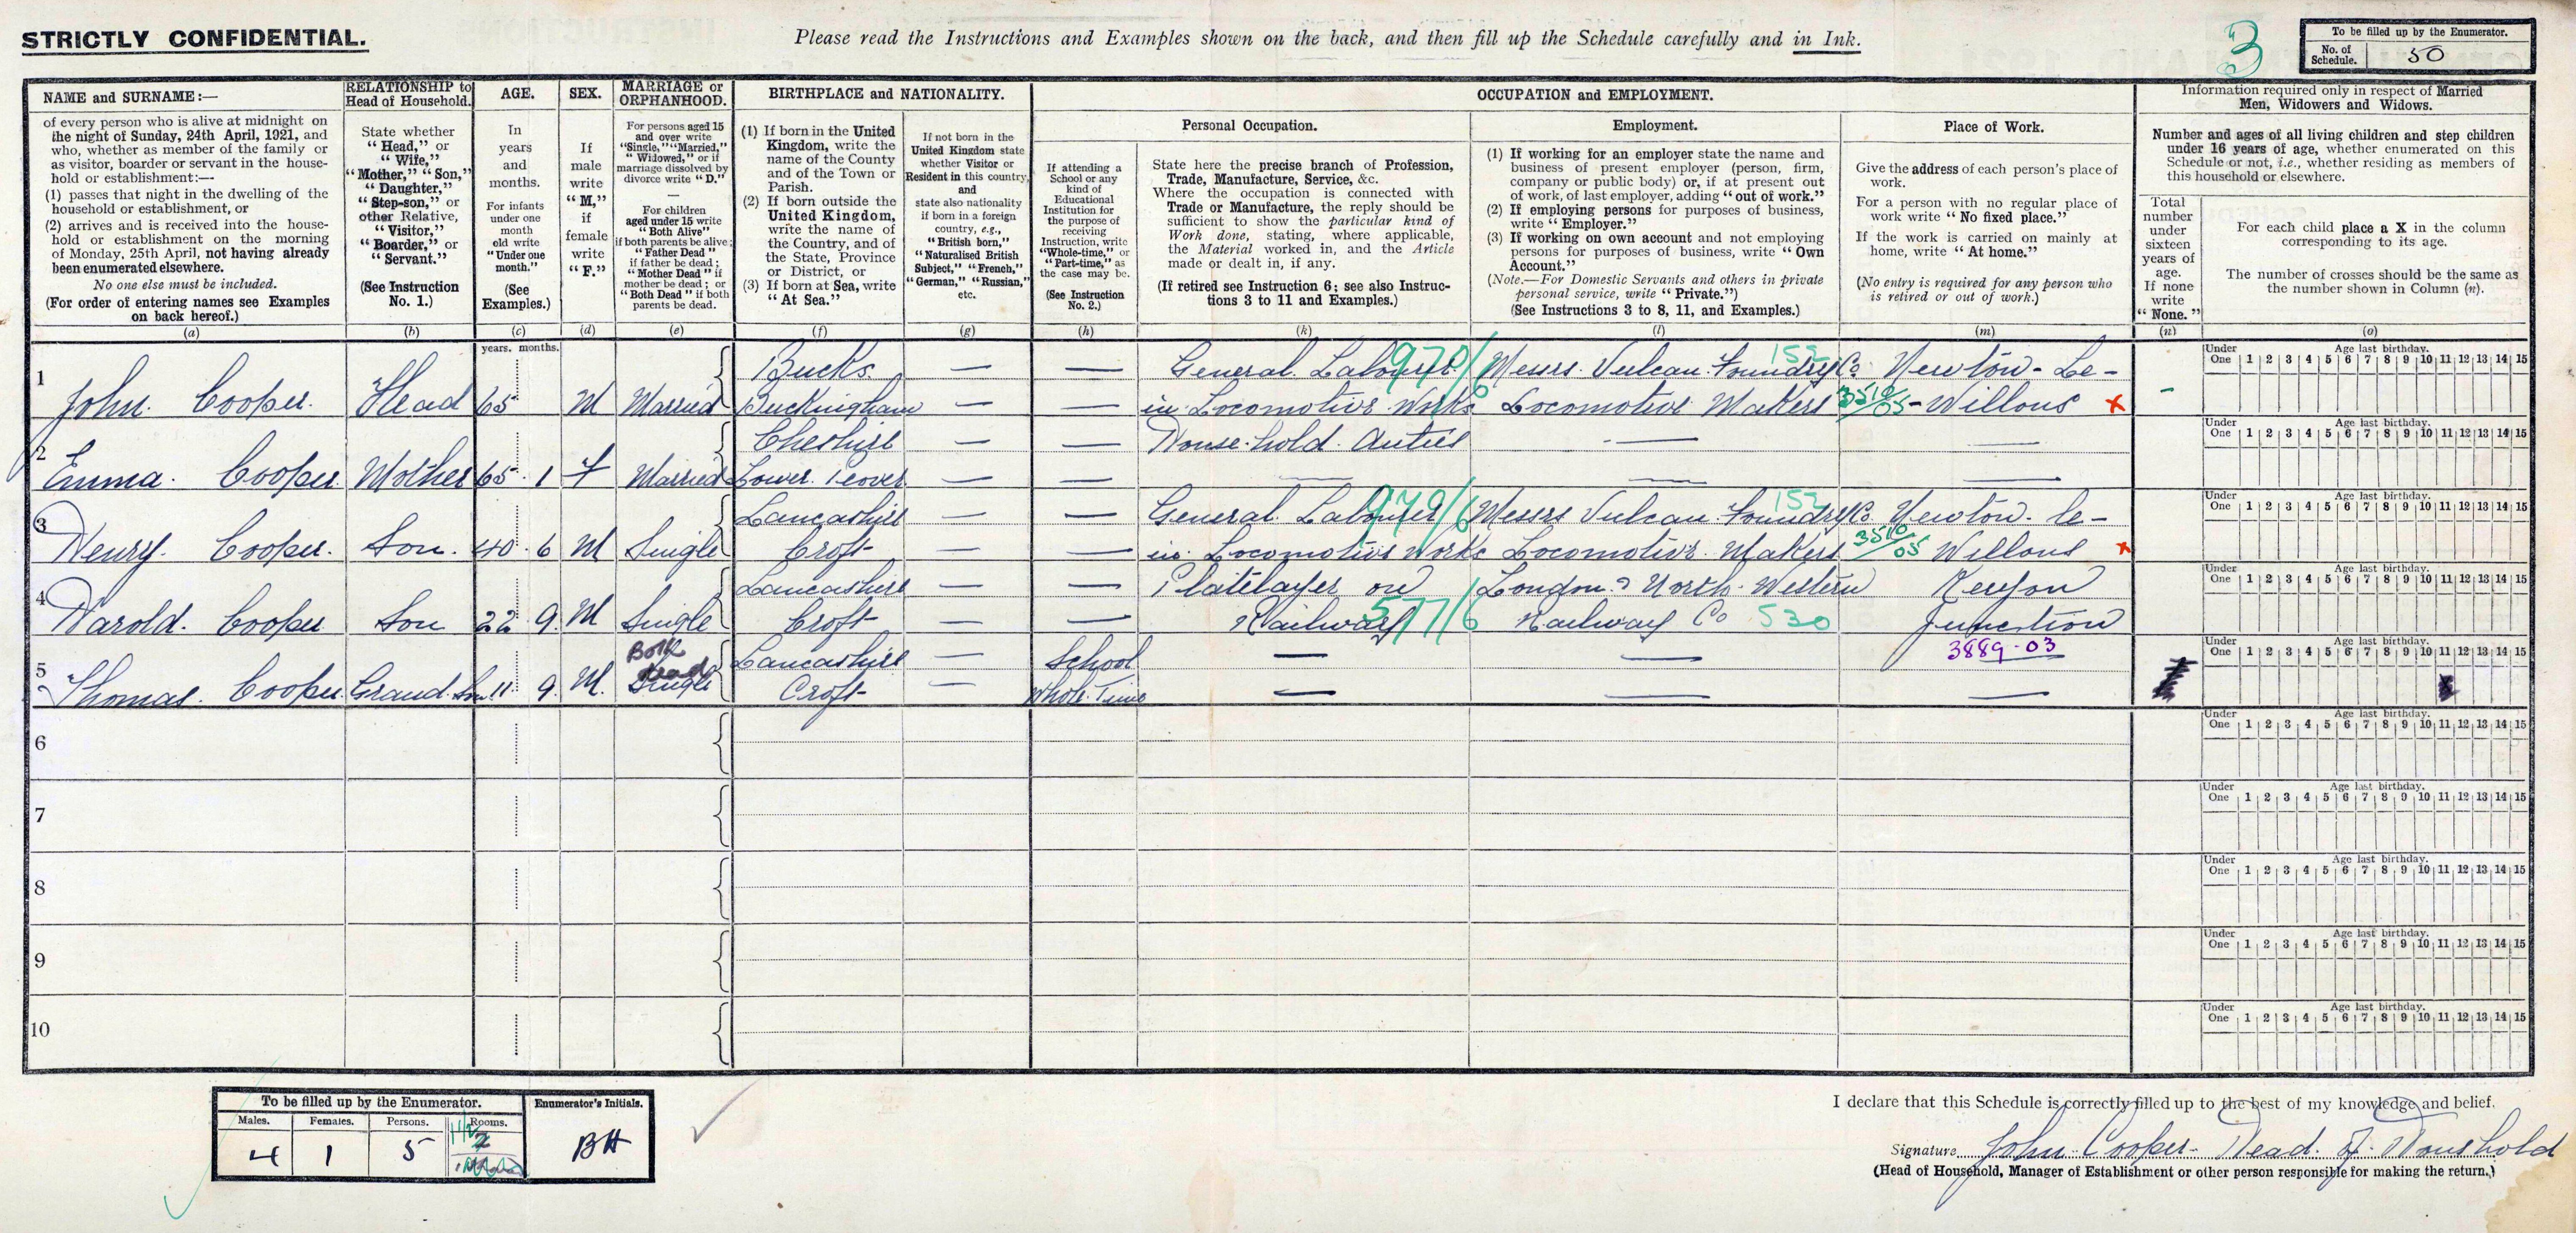 STRICTLY CONFIDENTIAL.
Please read the Instructions and Examples shown on the back, and then fill up the Schedule carefully and in Ink.
3
To be filled up by the Enumerator.
No. of Schedule. 50
NAME and SURNAME:—
of every person who is alive at midnight on
the night of Sunday, 24th April, 1921, and
who, whether as member of the family or
as visitor, boarder or servant in the house-
hold or establishment:—
(1) passes that night in the dwelling of the
household or establishment, or
(2) arrives and is received into the house-
hold or establishment on the morning
of Monday, 25th April, not having already
been enumerated elsewhere.
No one else must be included.
(For order of entering names see Examples
on back hereof.)
(a)
RELATIONSHIP to
Head of Household.
State whether
"Head," or
"Wife,"
"Mother," "Son,"
"Daughter,"
"Step-son," or
other Relative,
"Visitor,"
"Boarder," or
"Servant."
(See Instruction
No. 1.)
(b)
AGE.
In
years
and
months.
For infants
under one
month
old write
"Under one
month."
(See
Examples.)
(c)
SEX.
If
male
write
"M,"
if
female
write
"F."
(d)
MARRIAGE or
ORPHANHOOD.
For persons aged 15
and over write
"Single," "Married,"
"Widowed," or if
marriage dissolved by
divorce write "D."
For children
aged under 15 write
"Both Alive"
if both parents be alive;
"Father Dead"
if father be dead;
"Mother Dead" if
mother be dead; or
"Both Dead" if both
parents be dead.
(e)
BIRTHPLACE and NATIONALITY.
(1) If born in the United
Kingdom, write the
name of the County
and of the Town or
Parish.
(2) If born outside the
United Kingdom,
write the name of
the Country, and of
the State, Province
or District, or
(3) If born at Sea, write
"At Sea."
(f)
If not born in the
United Kingdom state
whether Visitor or
Resident in this country,
and
state also nationality
if born in a foreign
country, e.g.,
"British born,"
"Naturalised British
Subject," "French,"
"German," "Russian,"
etc.
(g)
OCCUPATION and EMPLOYMENT.
If attending a
School or any
kind of
Educational
Institution for
the purpose of
receiving
Instruction, write
"Whole-time," or
"Part-time," as
the case may be.
(See Instruction
No. 2.)
(h)
Personal Occupation.
State here the precise branch of Profession,
Trade, Manufacture, Service, &c.
Where the occupation is connected with
Trade or Manufacture, the reply should be
sufficient to show the particular kind of
Work done, stating, where applicable,
the Material worked in, and the Article
made or dealt in, if any.
(If retired see Instruction 6; see also Instruc-
tions 3 to 11 and Examples.)
(k)
Employment.
(1) If working for an employer state the name and
business of present employer (person, firm,
company or public body) or, if at present out
of work, of last employer, adding "out of work."
(2) If employing persons for purposes of business,
write "Employer."
(3) If working on own account and not employing
persons for purposes of business, write "Own
Account."
(Note.—For Domestic Servants and others in private
personal service, write "Private.")
(See Instructions 3 to 8, 11, and Examples.)
(l)
Place of Work.
Give the address of each person's place of
work.
For a person with no regular place of
work write "No fixed place."
If the work is carried on mainly at
home, write "At home."
(No entry is required for any person who
is retired or out of work.)
(m)
Information required only in respect of Married
Men, Widowers and Widows.
Number and ages of all living children and step children
under 16 years of age, whether enumerated on this
Schedule or not, i.e., whether residing as members of
this household or elsewhere.
Total
number
under
sixteen
years of
age.
If none
write
"None."
(n)
For each child place a X in the column
corresponding to its age.
The number of crosses should be the same as
the number shown in Column (n).
(o)
years. months.
1
Bucks. — — General. Labourer 970/6 Messrs. Vulcan. Foundry Co 152 Newton-Le-
John. Cooper. Head 65 M Married Buckingham — — in. Locomotive Works Locomotive Makers 3510/05 -Willows X
Under One 1 2 3 4 5 6 7 8 9 10 11 12 13 14 15
Age last birthday.
2
Cheshire — — House.hold. Duties — —
Emma. Cooper. Mother 65 1 F Married Lower. Peover — — — — —
Under One 1 2 3 4 5 6 7 8 9 10 11 12 13 14 15
Age last birthday.
3
Lancashire — — General. Labourer 970/6 Messrs Vulcan. Foundry Co. 152 Newton. le-
Henry. Cooper. Son. 40 6 M Single Croft — — in. Locomotive Works Locomotive. Makers. 3510/05 Willows X
Under One 1 2 3 4 5 6 7 8 9 10 11 12 13 14 15
Age last birthday.
4
Lancashire — — Platelayer on London & North. Western Kenyon
Harold. Cooper Son 22 9. M Single Croft — — Railway 577/6 Railway Co 530 Junction
Under One 1 2 3 4 5 6 7 8 9 10 11 12 13 14 15
Age last birthday.
3889-03
5
Both Dead Lancashire — School — —
Thomas. Cooper Grand. Son 11 9 M. Single Croft — Whole. Time — — —
Under One 1 2 3 4 5 6 7 8 9 10 11 12 13 14 15
Age last birthday.
6
Under One 1 2 3 4 5 6 7 8 9 10 11 12 13 14 15
Age last birthday.
7
Under One 1 2 3 4 5 6 7 8 9 10 11 12 13 14 15
Age last birthday.
8
Under One 1 2 3 4 5 6 7 8 9 10 11 12 13 14 15
Age last birthday.
9
Under One 1 2 3 4 5 6 7 8 9 10 11 12 13 14 15
Age last birthday.
10
Under One 1 2 3 4 5 6 7 8 9 10 11 12 13 14 15
Age last birthday.
To be filled up by the Enumerator.
Males. Females. Persons. Rooms.
4 1 5
Enumerator's Initials.
BH
I declare that this Schedule is correctly filled up to the best of my knowledge and belief.
Signature John Cooper- Head. of. Household
(Head of Household, Manager of Establishment or other person responsible for making the return.)